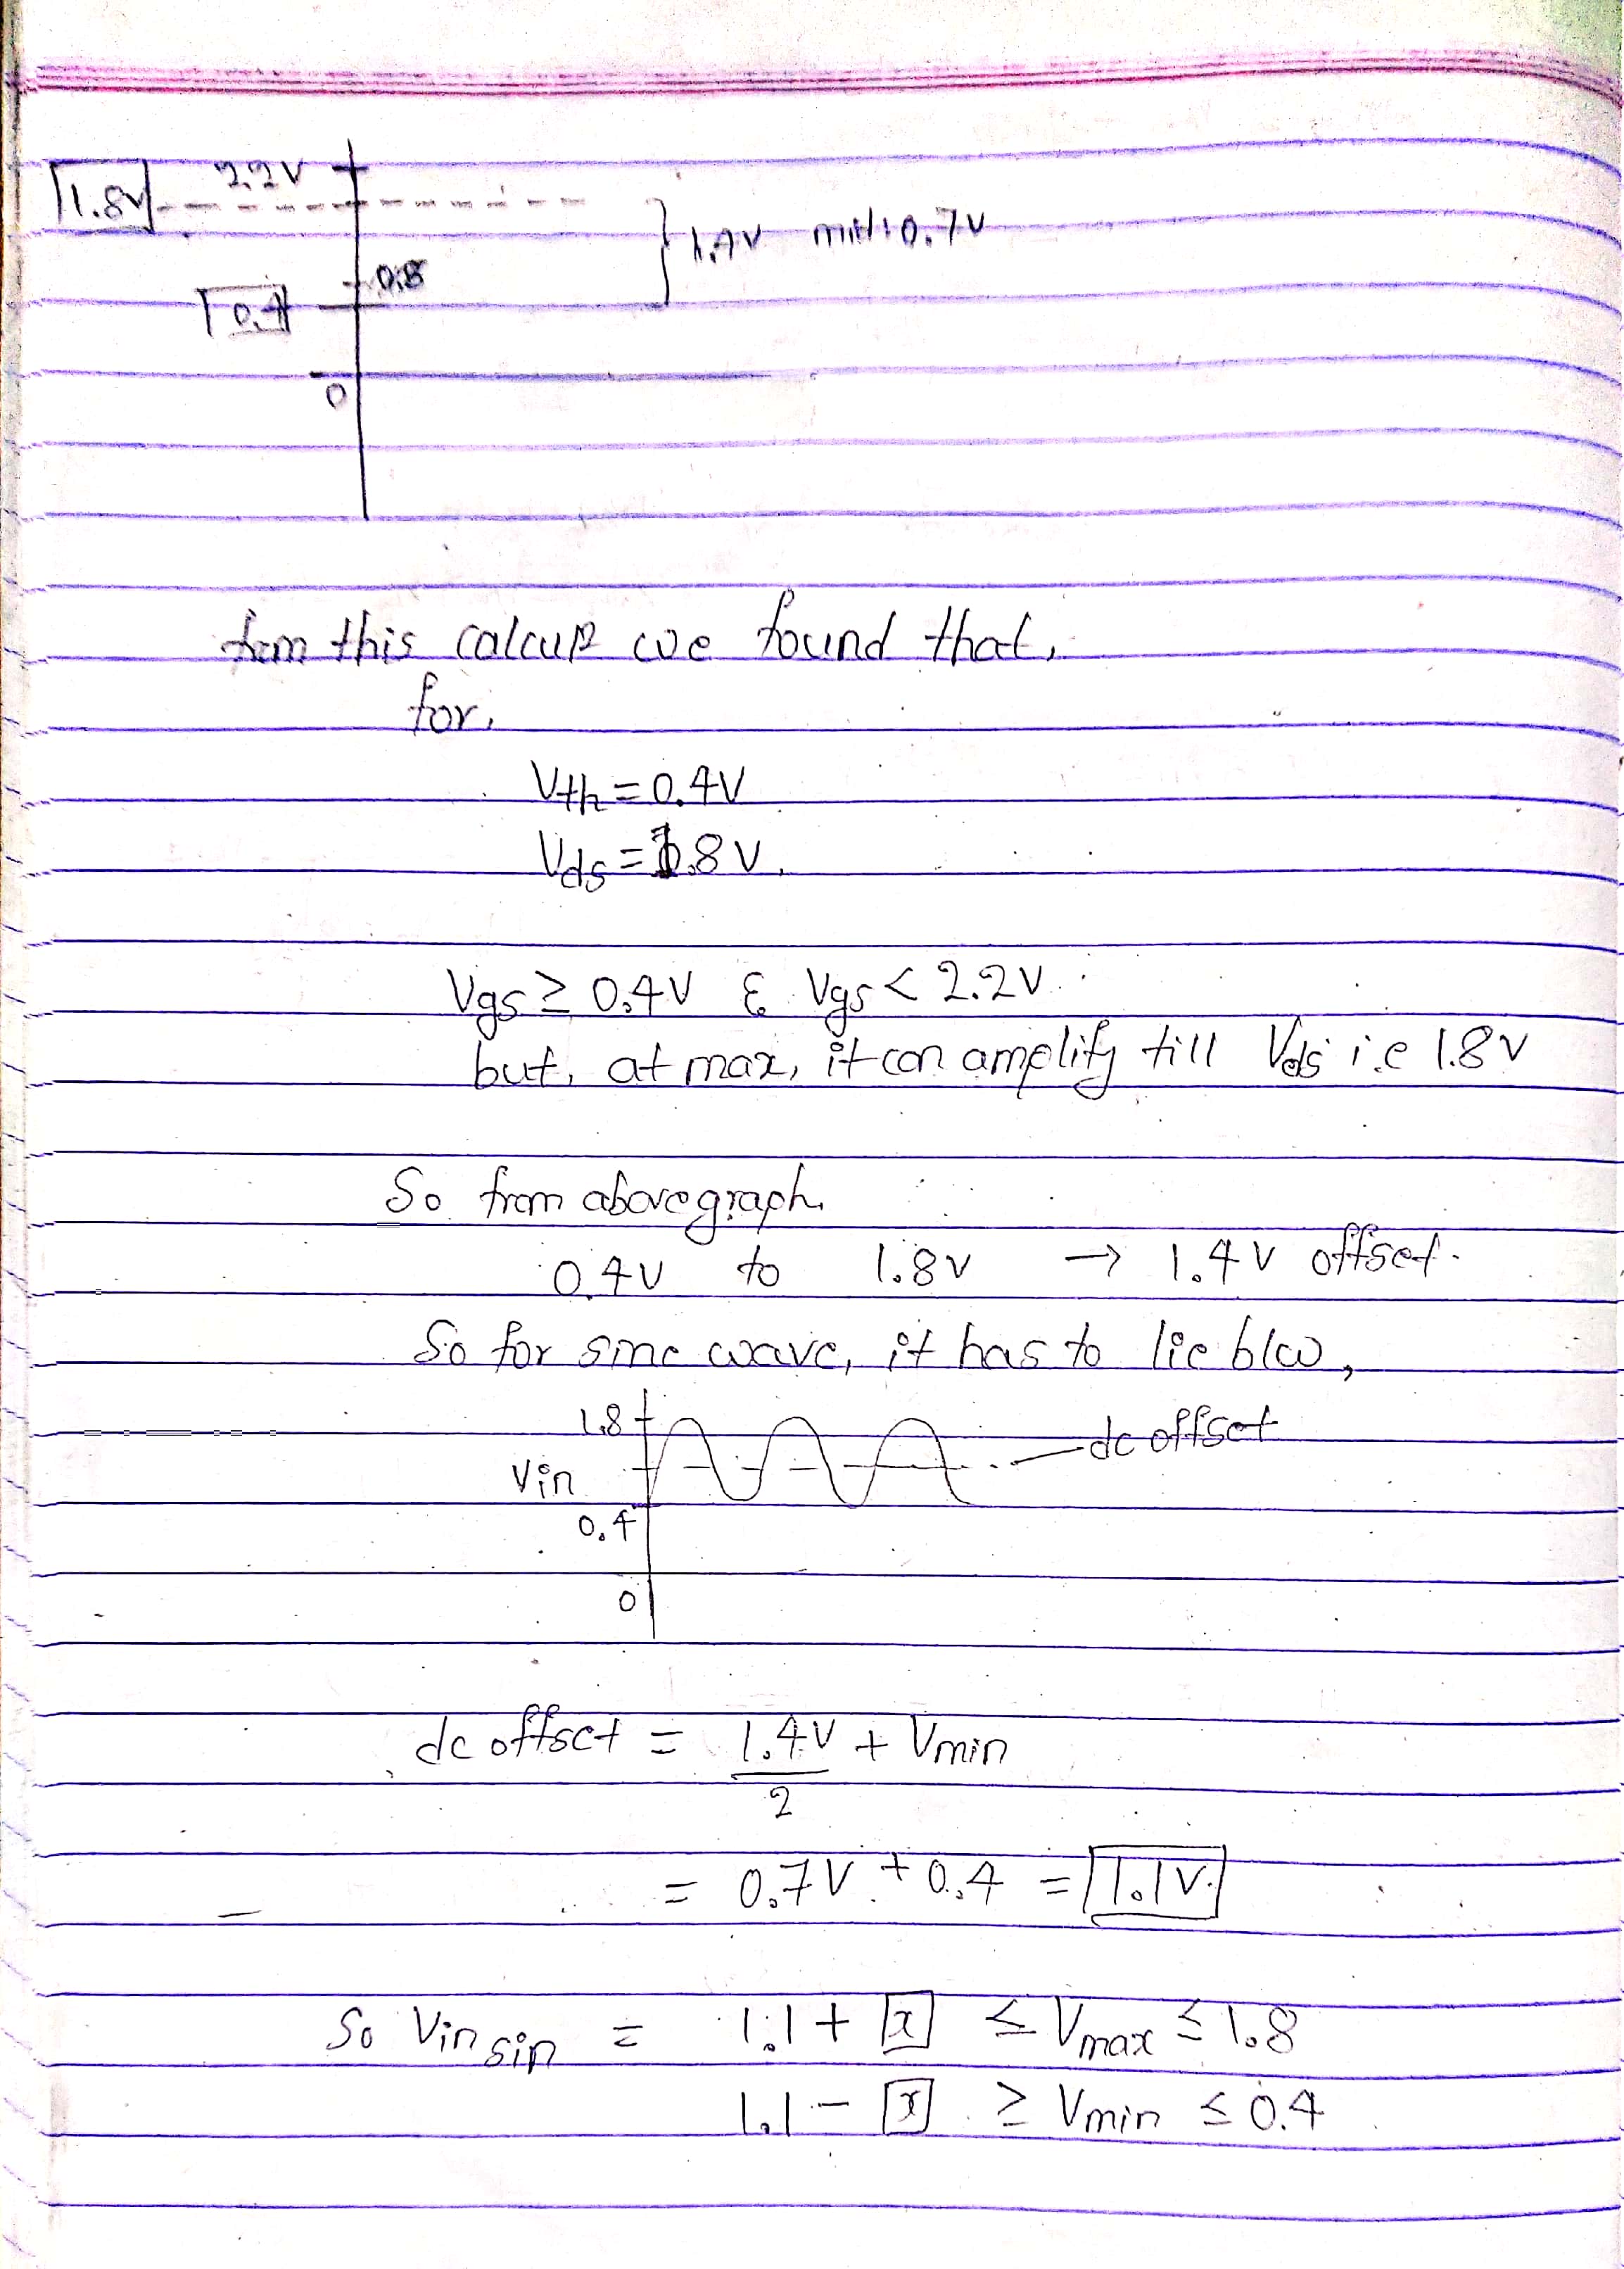 2.2V
1.8V
1.4V mid: 0.7V
0.8
0.4
0
from this calcup we found that,
for,
Vth = 0.4V
Vds = 1.8V.
Vgs ≥ 0.4V & Vgs < 2.2V.
but, at max, it can amplify till Vds i.e 1.8V
So from above graph.
0.4V to 1.8V → 1.4V offset.
So for sine wave, it has to lie b/w,
1.8
dc offset
Vin
0.4
0
dc offset = 1.4V + Vmin
2
= 0.7V + 0.4 = 1.1V.
So Vin sin = 1.1 + x ≤ Vmax ≤ 1.8
1.1 - x ≥ Vmin ≤ 0.4